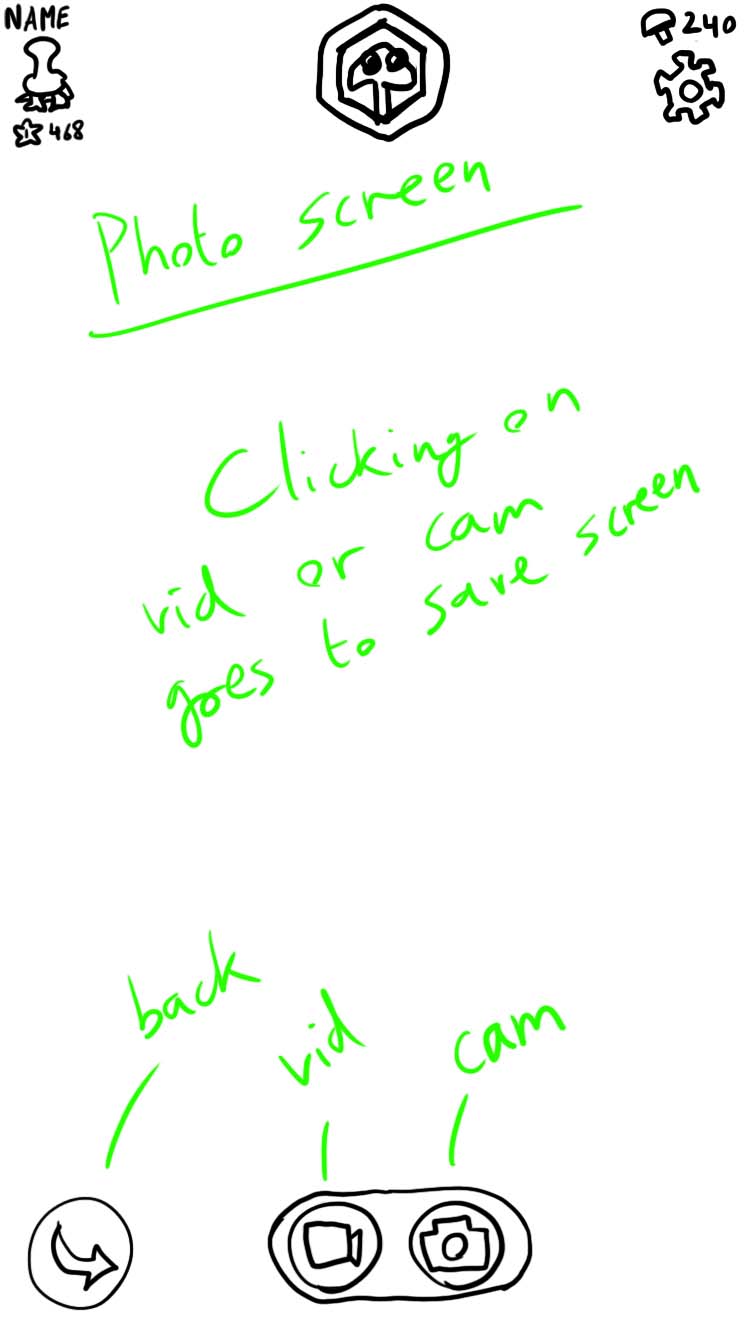 NAME
240
1 468
Photo screen
Clicking on
vid or cam
goes to save screen
back
vid
cam